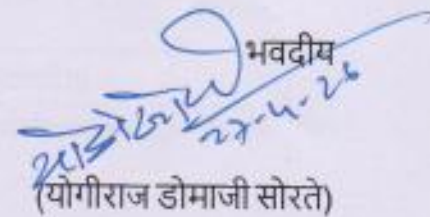 भवदीय
27-4-26
(योगीराज डोमाजी सोरते)